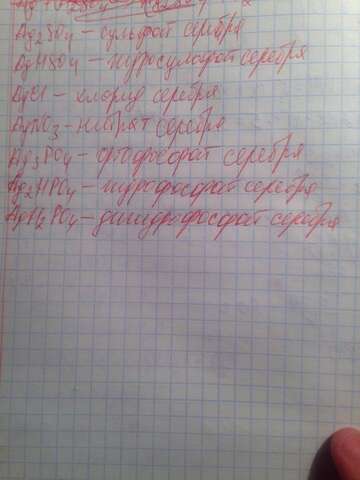 Ag2SO4 – сульфат серебра
AgHSO4 – гидросульфат серебра
AgCl – хлорид серебра
AgNO3 – нитрат серебра
Ag3PO4 – ортофосфат серебра
Ag2HPO4 – гидрофосфат серебра
AgH2PO4 – дигидрофосфат серебра